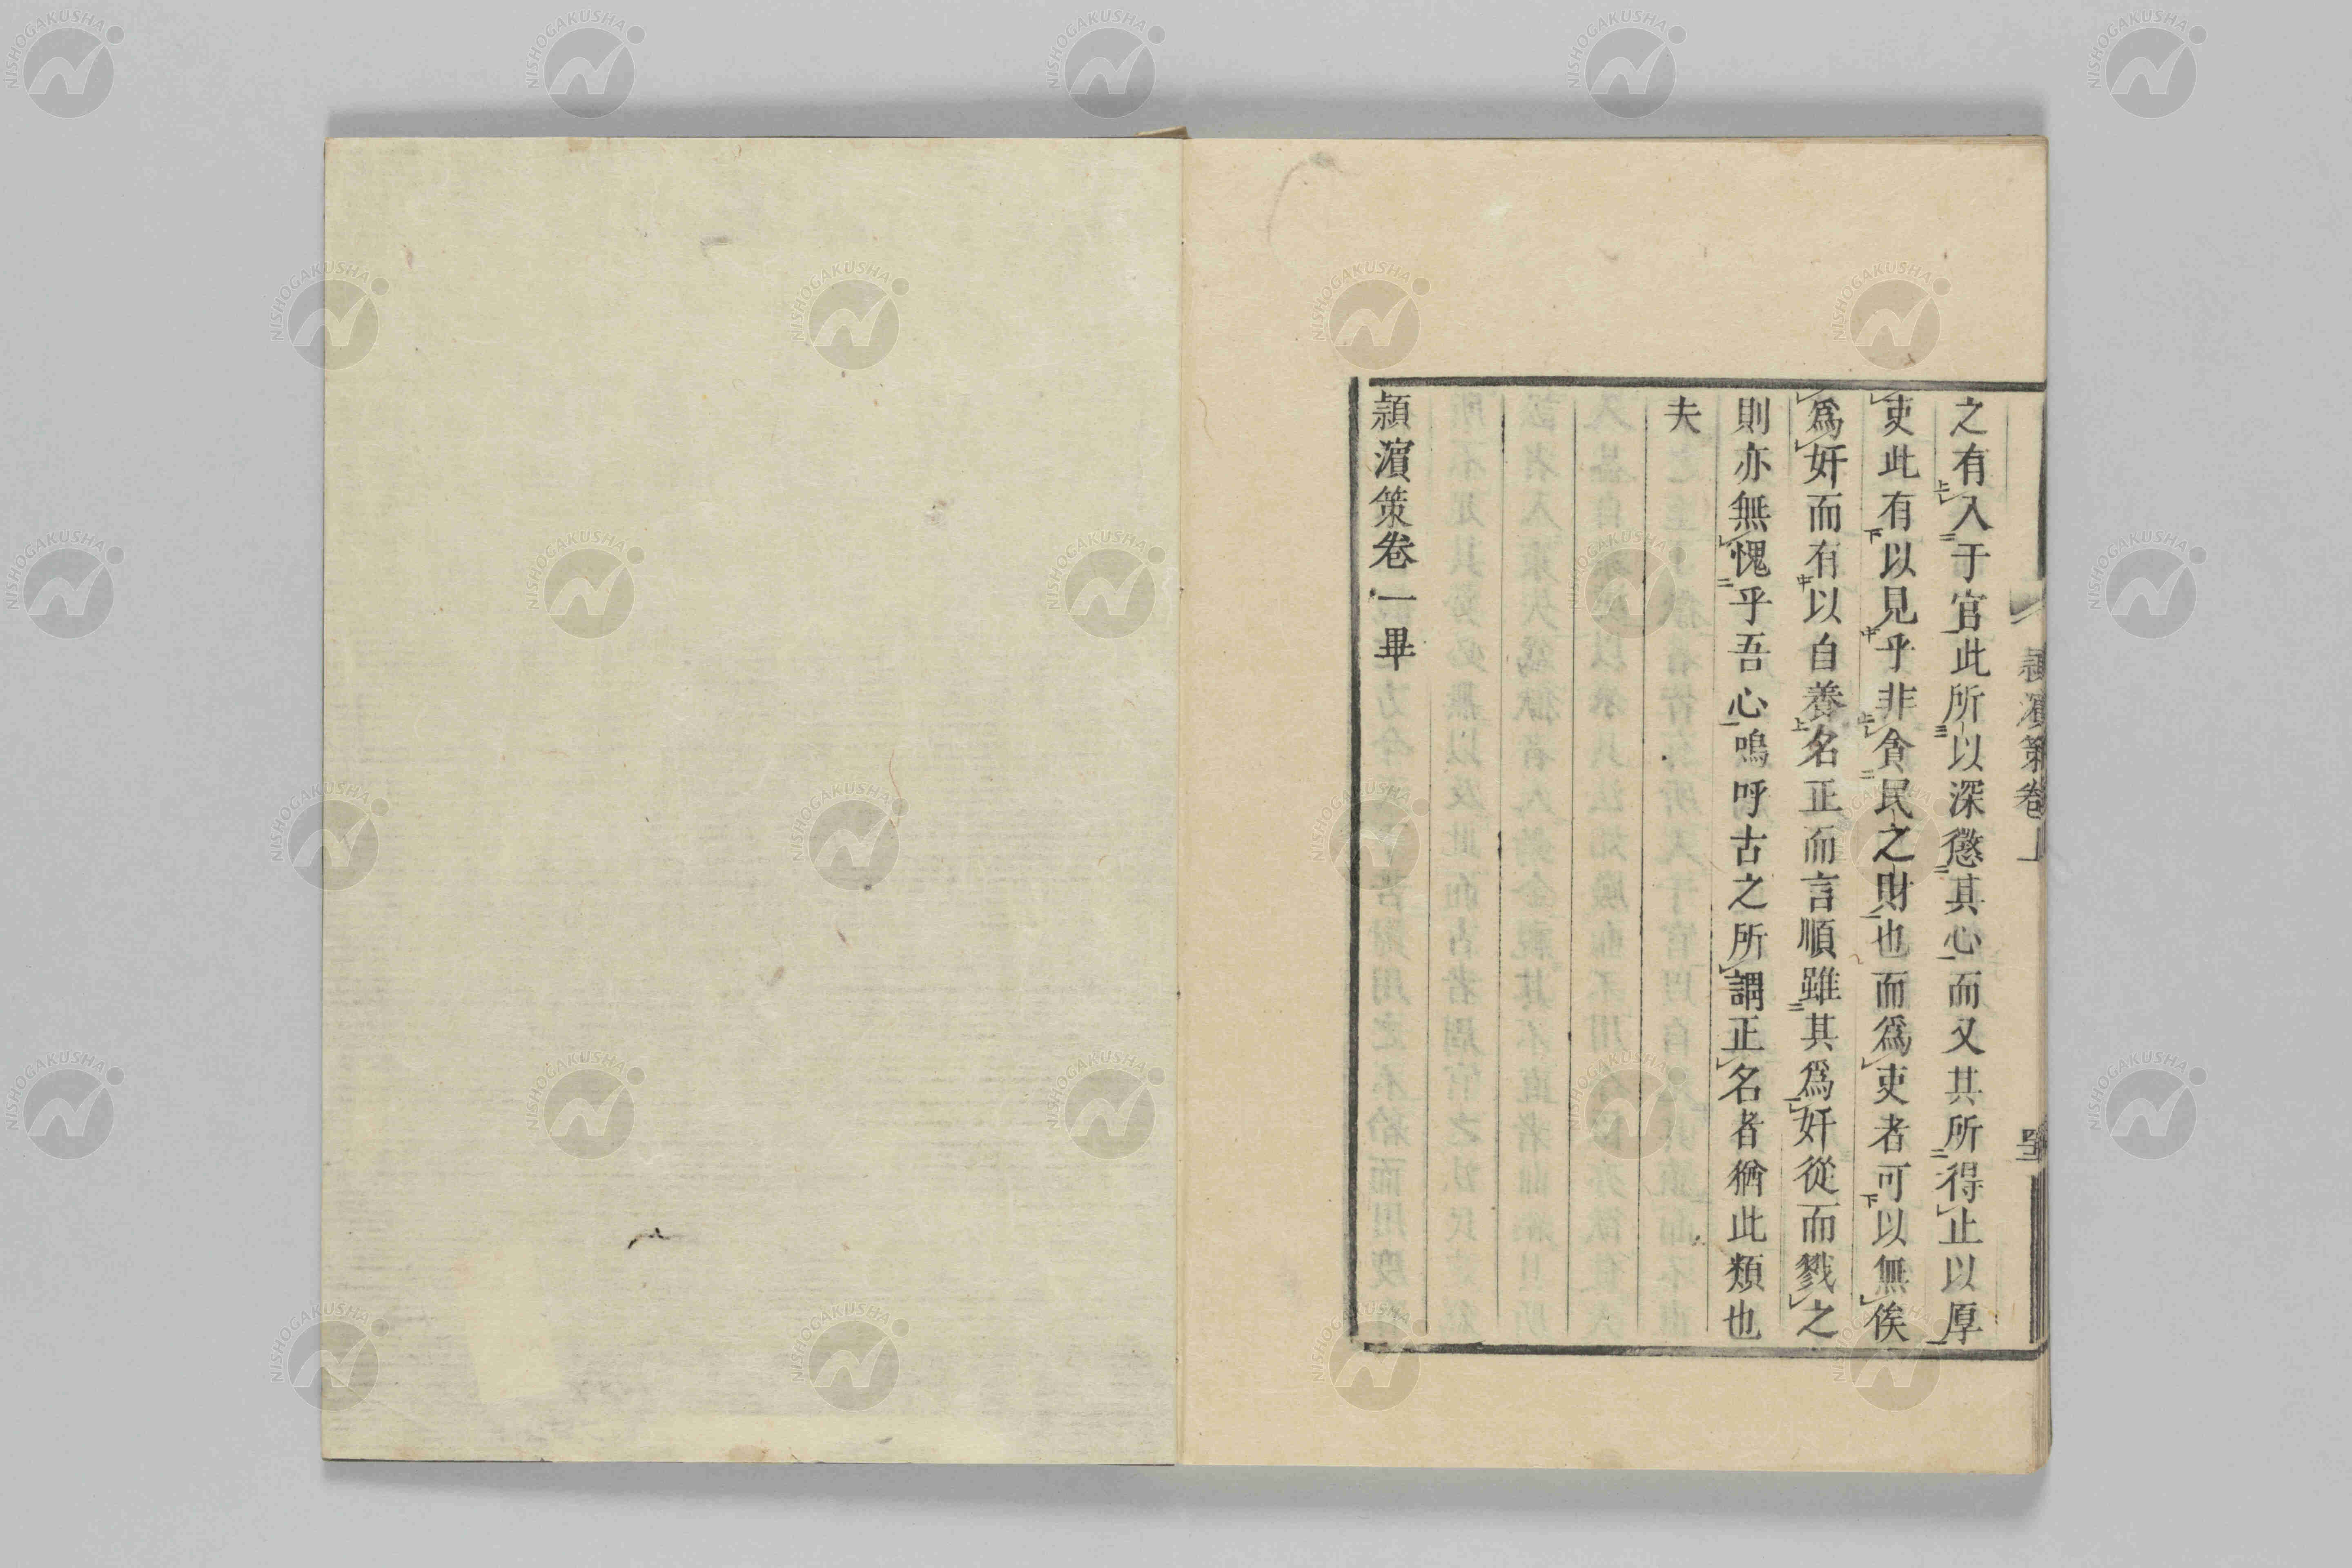 之有入于官此所以深懲其心而又其所得止以厚
吏此有以見乎非貪民之財也而爲吏者可以無俟
爲奸而有以自養名正而言順雖其爲奸從而戮之
則亦無愧乎吾心嗚呼古之所謂正名者猶此類也
夫
潁濵策卷一畢